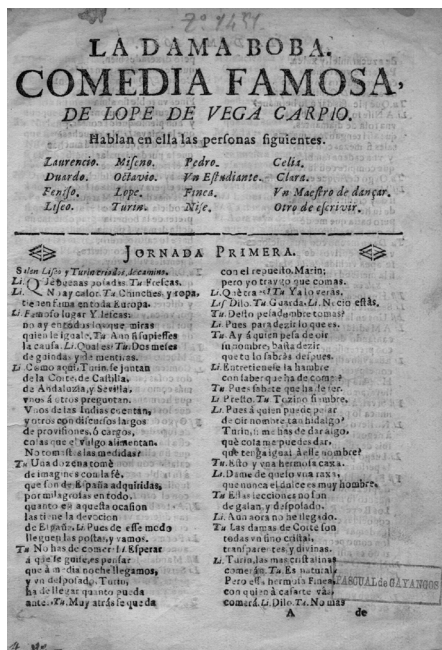 LA DAMA BOBA.
COMEDIA FAMOSA,
DE LOPE DE VEGA CARPIO.
Hablan en ella las personas siguientes.
Laurencio. Miseno. Pedro. Celia.
Duardo. Octavio. Vn Estudiante. Clara.
Feniso. Lope. Finea. Vn Maestro de dançar.
Liseo. Turin. Nise. Otro de escrivir.
JORNADA PRIMERA.
Salen Liseo y Turin criados, de camino.
Li. Què buenas posadas Tu Frescas.
Li. No ay calor. Tu Chinches, y ropa,
tienen fama en toda Europa.
Li Famoso lugar Y lescas:
no ay en todos los que miras
quien le iguale. Tu Aun si supiesses
la causa. Li. Qual es? Tu Dos meses
de guindas, y de mentiras.
Li. Como aqui, Turin, se juntan
de la Corte, de Castilla,
de Andaluzia, y Sevilla,
vnos à otros preguntan.
Vnos de las Indias cuentan,
y otros con discursos largos
de provisiones, ò cargos,
cosas que el vulgo alimentan.
No tomaste las medidas?
Tu Una dozena tomè
de imagines con la fè,
que son de España adquiridas,
por milagrosas en todo.
quanto en aquesta ocasion
las tiene la devocion
de España. Li Pues de esse modo
lleguen las postas, y vamos.
Tu No has de comer? Li Esperar
à que se guise, es pensar
que à media noche llegamos,
y un desposado, Turin,
ha de llegar quanto pueda
ante. Tu. Muy atràs se queda
con el repuesto, Marin;
pero yo traygo que comas.
Li. Què traes? Tu Ya lo veràs.
Li Dilo. Tu Guarda. Li. Necio estàs.
Tu. Desto pesadumbre tomas?
Li. Pues para dezir lo que es.
Tu. Ay à quien pesa de oir
su nombre, basta dezir
que tu lo sabràs despues.
Li. Entretienese la hambre
con saber que ha de comer?
Tu Pues sabete que ha de ser.
Li Presto. Tu Tozino fiambre.
Li. Pues à quien puede pesar
de oir nombre tan hidalgo?
Turin, si me has de dar algo,
què cosa me puedes dar,
que tenga igual à esse nombre?
Tu. Esto y una hermosa caxa.
Li. Dame de queso una raxa,
que nunca el dulce es muy hombre.
Tu Essas lecciones no son
de galan, y desposado.
Li. Aun aora no he llegado.
Tu Las damas de Corte son
todas vn fino cristal,
transparentes, y divinas.
Li. Turin, las mas cristalinas
comeràn. Tu Es natural,
Pero essa hermosa Finea,
con quien à casarte vàs,
comerà. Li. Dilo. Tu. No mas
A de
PASCUAL de GAYANGOS